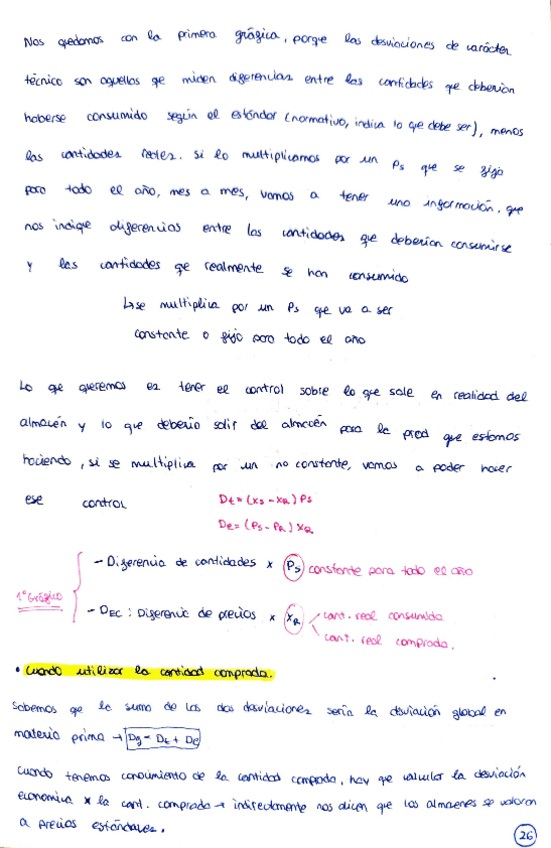 Nos quedamos con la primera gráfica, porque las desviaciones de carácter
técnico son aquellas qe miden diferencias entre las cantidades qe deberían
haberse consumido según el estándar (normativo, indica lo qe debe ser), menos
las cantidades reales. Si lo multiplicamos por un Ps que se fija
para todo el año, mes a mes, vamos a tener una información, que
nos indique diferencias entre las cantidades que deberían consumirse
y las cantidades qe realmente se han consumido
↳se multiplica por un Ps qe va a ser
constante o fijo para todo el año
Lo qe queremos es tener el control sobre lo que sale en realidad del
almacén y lo que debería salir del almacén para la prod que estamos
haciendo, si se multiplica por un no constante, vamos a poder hacer
ese control
Dt = (xs - xR) Ps
De = (Ps - PR) xR
- Diferencia de cantidades x Ps constante para todo el año
1ª Gráfica
- DEC : Diferencia de precios x xR cant. real consumida
cant. real comprada.
• Cuando utilizar la cantidad comprada.
Sabemos que la suma de las dos desviaciones sería la desviación global en
materia prima → Dg = Dt + De
Cuando tenemos conocimiento de la cantidad comprada, hay que calcular la desviación
economica x la cant. comprada → indirectamente nos dicen que los almacenes se valoran
a precios estándares.
26